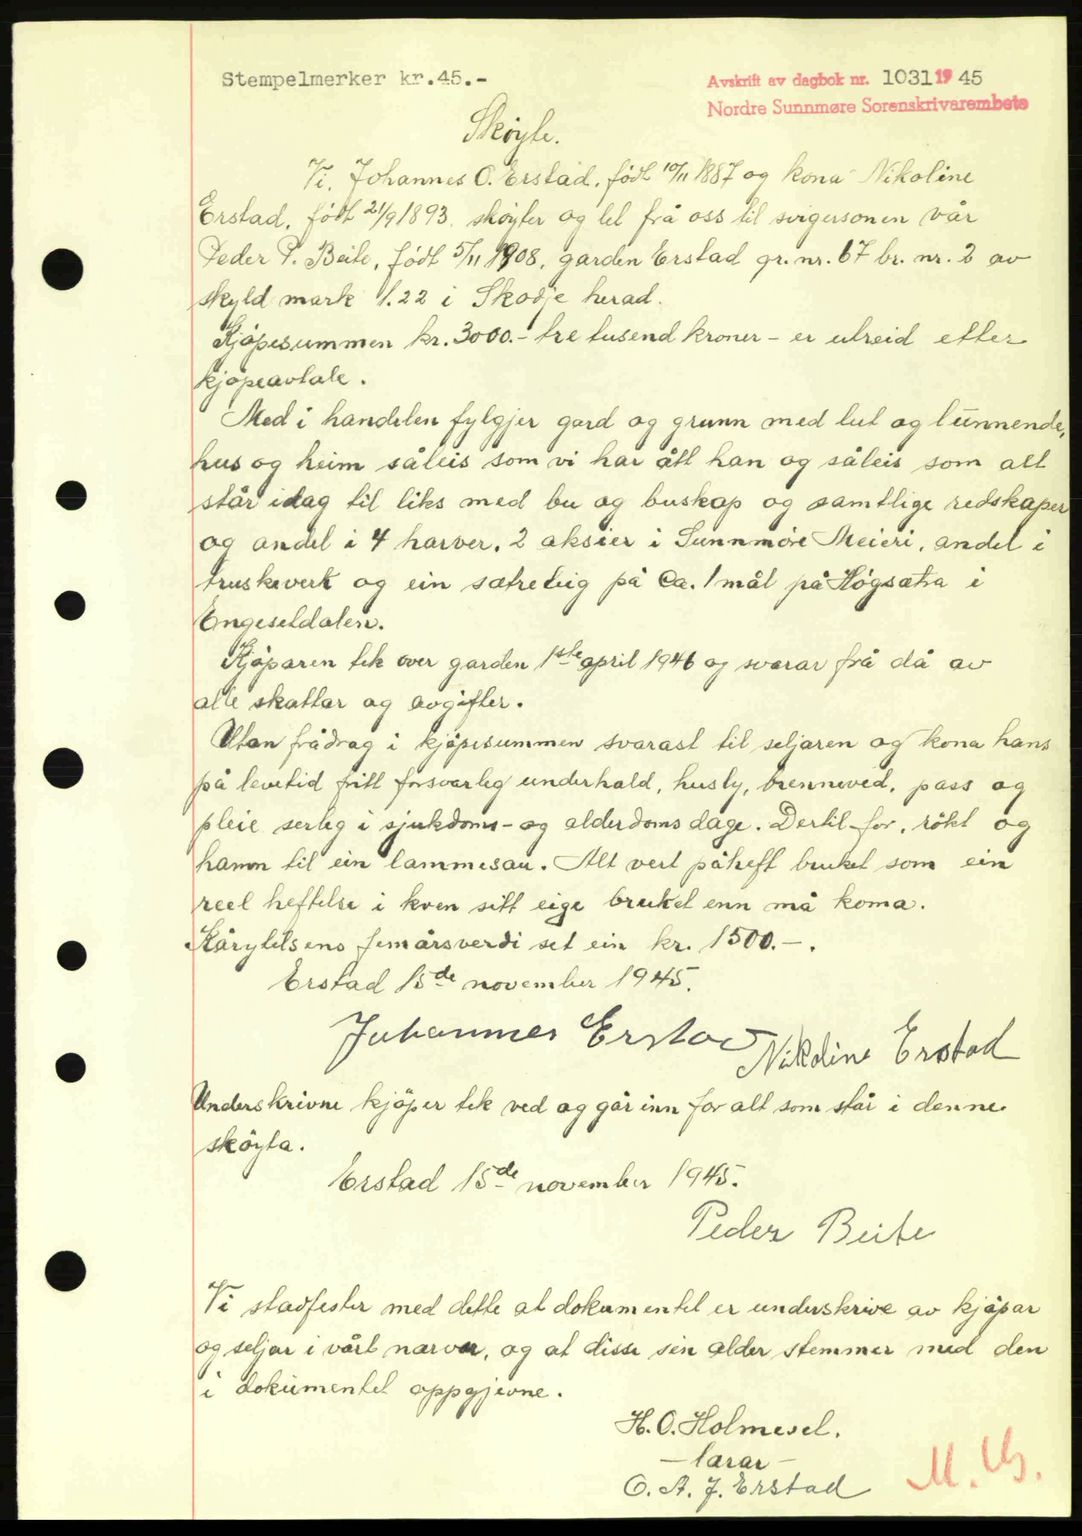 Stempelmerker kr.45.-
Avskrift av dagbok nr. 1031 19 45
Nordre Sunnmøre Sorenskrivarembete
Skøyte.
Vi, Johannes O. Erstad, født 10/11 1887 og kona Nikoline
Erstad, født 21/9 1893, skøyter og let frå oss til svigersonen vår
Peder P. Beite, født 5/11 1908, garden Erstad gr. nr. 67 br. nr. 2 av
skyld mark 1.22 i Skodje herad.
Kjøpesummen kr. 3000.- tre tusend kroner - er utreid etter
kjøpeavtale.
Med i handelen fylgjer gard og grunn med lut og lunnende,
hus og heim såleis som vi har ått han og såleis som alt
står idag til liks med bu og buskap og samtlige redskaper
og andel i 4 harver, 2 aksier i Sunnmøre Meieri, andel i
truskeverk og ein sætreteig på Ca. 1 mål på Høgsætra i
Engesetdalen.
Kjøparen tek over garden 1ste april 1946 og svarar frå då av
alle skattar og avgifter.
Utan frådrag i kjøpesummen svarast til seljaren og kona hans
på levetid fritt forsvarleg underhald, husly, brenneved, pass og
pleie serleg i sjukdoms- og alderdoms dage. Dertil for, røkt og
hamn til ein lammesau. Alt vert påheft bruket som ein
reel heftelse i kven sitt eige bruket enn må koma.
Kårytelsens femårsverdi set ein kr. 1500.-.
Erstad 15de november 1945.
Johannes Erstad Nikoline Erstad
Underskrivne kjøper tek ved og går inn for alt som står i denne
skøyta.
Erstad 15de november 1945.
Peder Beite
Vi stadfester med dette at dokumentet er underskrive av kjøpar
og seljar i vårt nærvær, og at disse sin alder stemmer med den
i dokumentet oppgjevne.
H. O. Holmeset.
- lærar -
O. A. J. Erstad